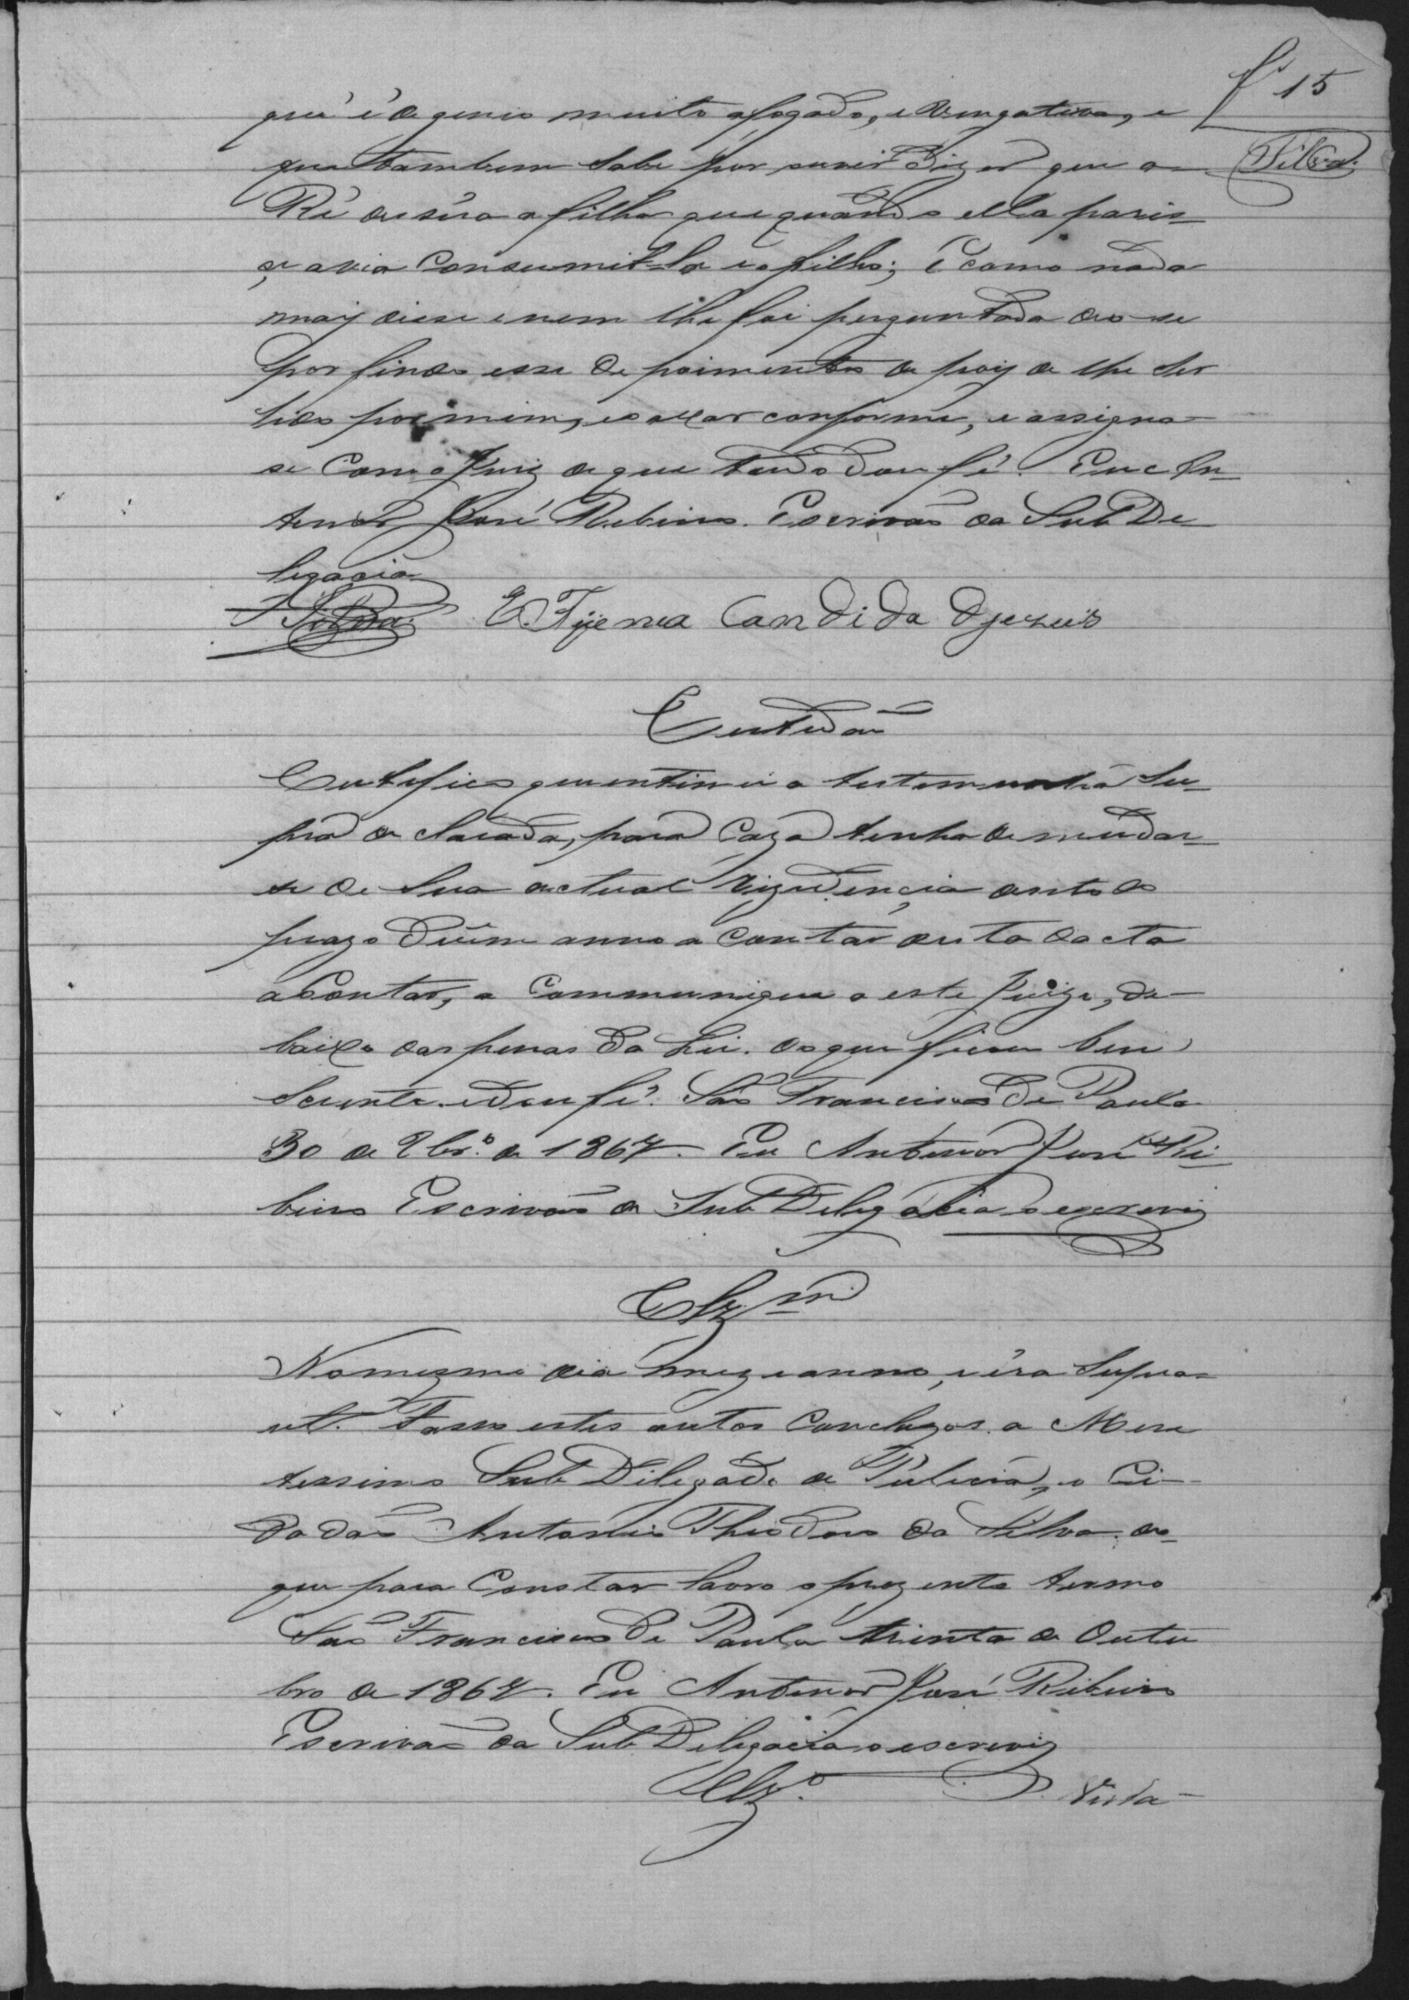 fl 15
Silva
que é de genio muito afogado, e vengativa, e
que tambem sabe por ouvir dizer que a
Ré dissera a filha que quando ella paris-
se, avia consumil-la e o filho; E como nada
mais disse e nem lhe foi perguntado deo-se
por findo esse depoimento depois de lhe ser
lido por mim, e o achar conforme, e assigna-
se com o Juiz de que tudo dou fé. Eu An-
tenor José Ribeiro. Escrivão da Sub De
legacia
Silva. Efijenia Candida djezuis
Certidão
Certifico que intimei a testemunha Su-
pra declarada, para caza tenha de mudar-
se de sua actual rezidencia dentro do
prazo d'um anno a contar desta dacta
a contar, a communique a este Juizo, de-
baixo das penas da Lei. do que ficou bem
sciente e dou fé. São Francisco de Paula
30 de 8br.º de 1867. Eu Antenor José Ri
beiro Escrivão da Sub Delegacia o escrevi
Clz.m
No mezmo dia mez e anno, e éra Supra
ut. Faço estes autos concluzos a Mere
tissimo Sub Delegado de Policia, o Ci-
dadão Antonio Theodoro da Silva. do
que para constar lavro o prezente termo
São Francisco de Paula trinta de Outu
bro de 1867. Eu Antenor José Ribeiro
Escrivão da Sub Delegacia o escrevi
Clz.º
Vista